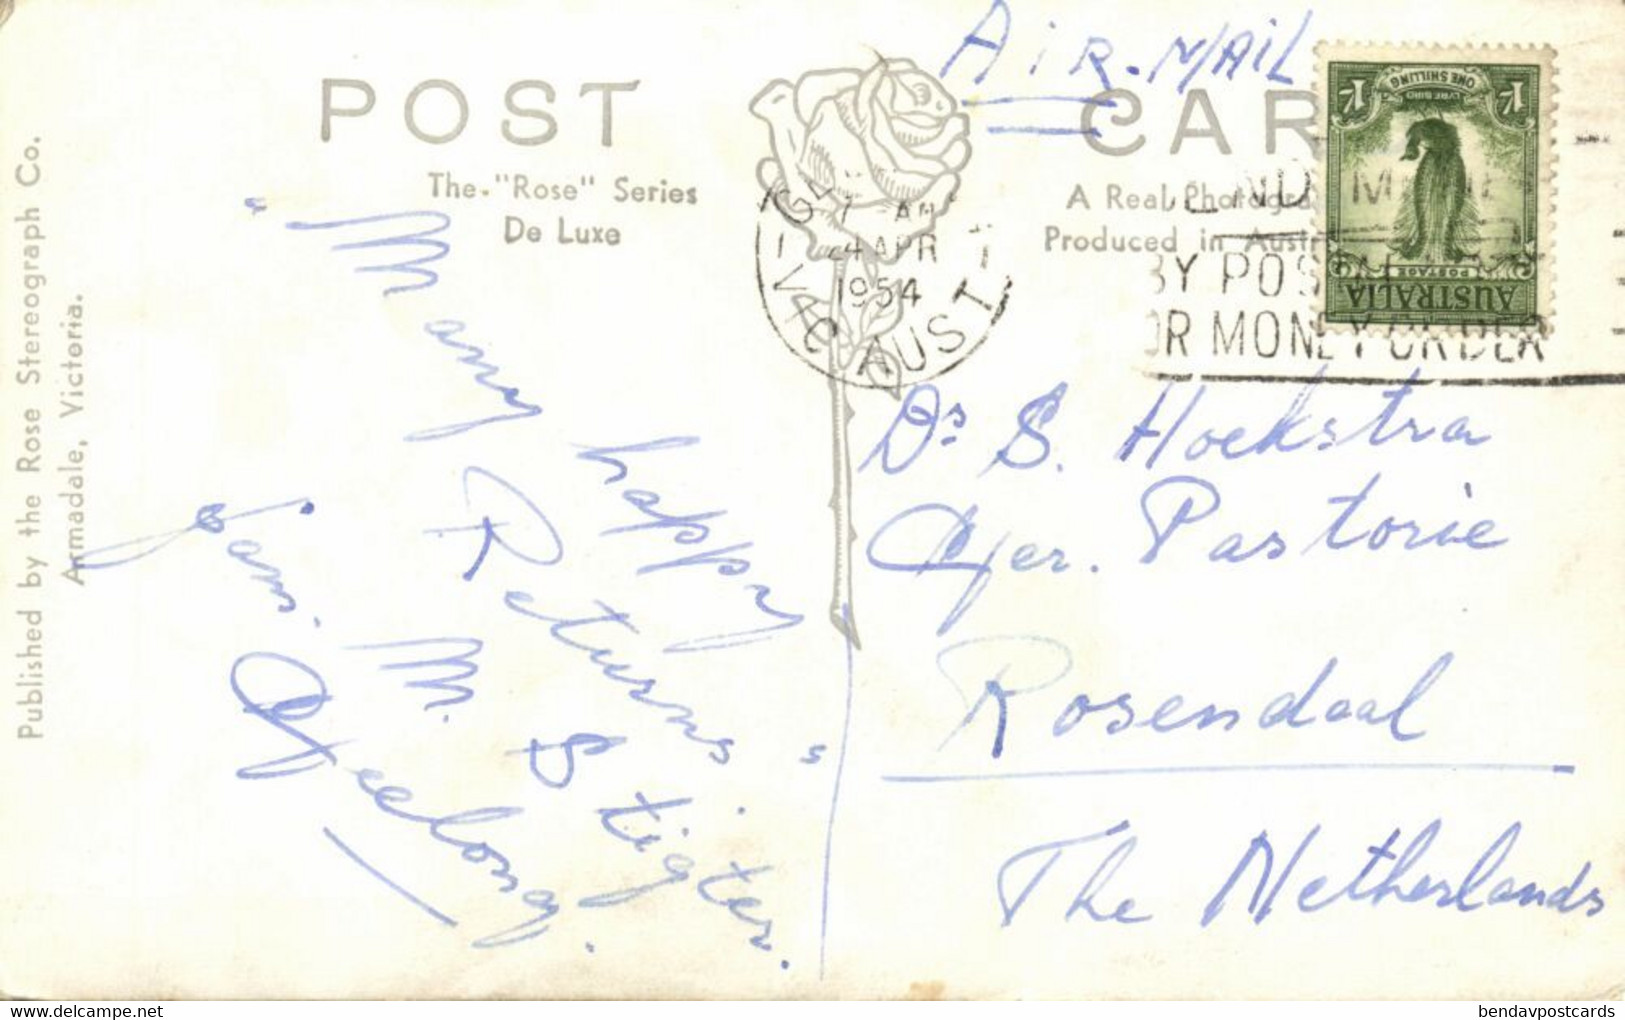 AiR-MAiL
POST CARD
The "Rose" Series
De Luxe
A Real Photogra
Produced in Austr
Published by the Rose Stereograph Co.
Armadale, Victoria.
1/- ONE SHILLING 1/-
LYRE BIRD
POSTAGE
AUSTRALIA
4 APR
1954
VIC AUST
BY POS
OR MONEY ORDER
"Many happy
Returns"
fam. M. Stigter.
Geelong.
Ds S. Hoekstra
Ger. Pastorie
Rosendaal
The Netherlands
bendavpostcards